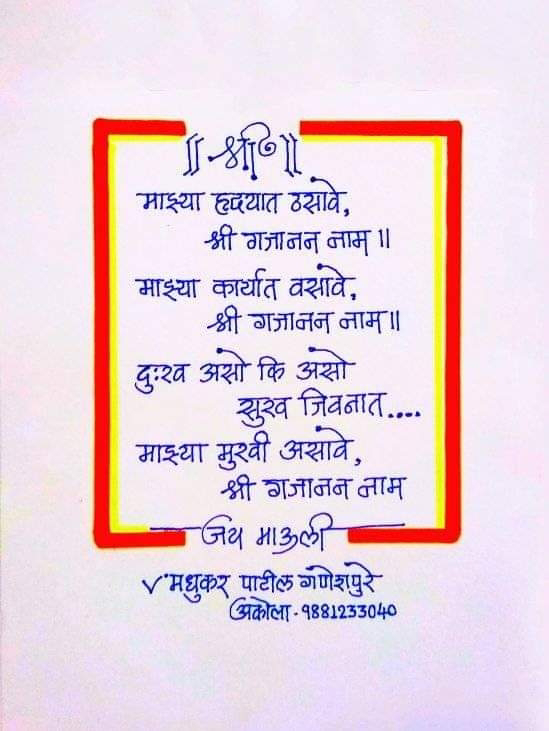 ॥ श्री ॥
माझ्या हृदयात ठसावे,
श्री गजानन नाम ॥
माझ्या कार्यात वसावे,
श्री गजानन नाम ॥
दुःख असो कि असो
सुख जिवनात....
माझ्या मुखी असावे,
श्री गजानन नाम
जय माऊली
मधुकर पाटील गणेशपुरे
अकोला - ९881233040